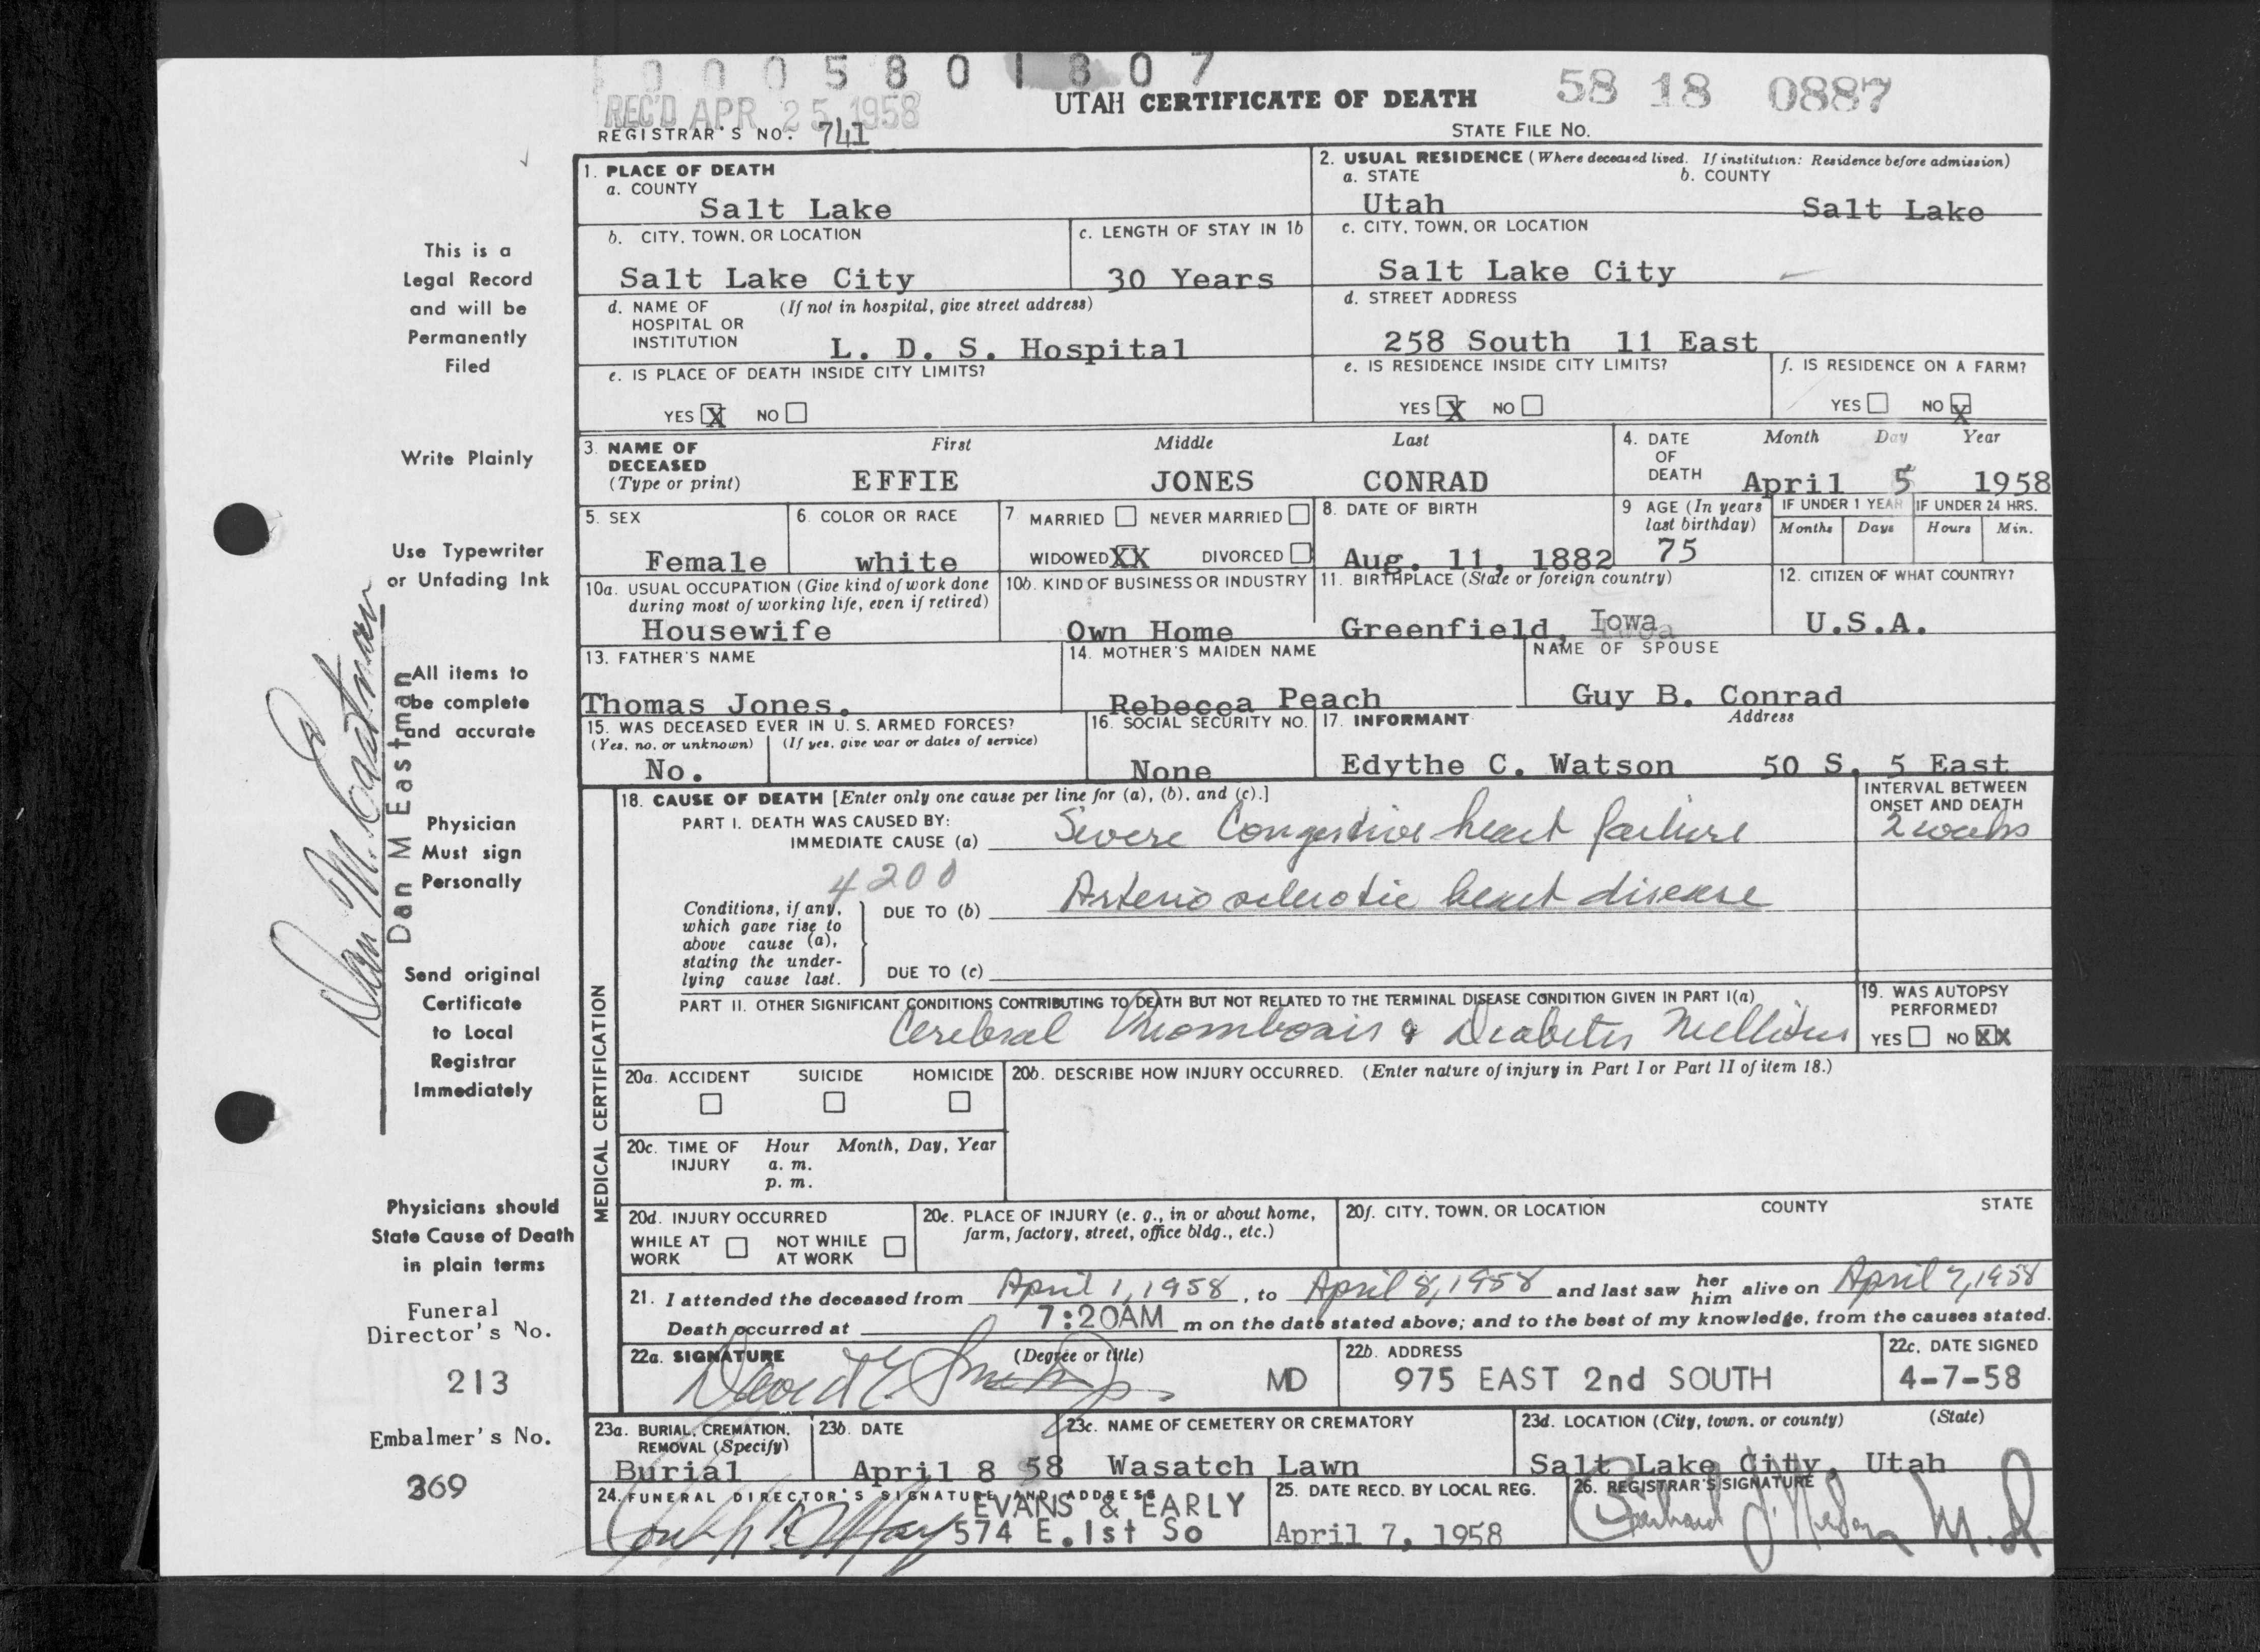 0005801807
REC'D APR 25 1958
UTAH CERTIFICATE OF DEATH
58 18 0887
REGISTRAR'S NO. 741
STATE FILE NO.
This is a
Legal Record
and will be
Permanently
Filed
Write Plainly
Use Typewriter
or Unfading Ink
All items to
be complete
and accurate
Physician
Must sign
Personally
Send original
Certificate
to Local
Registrar
Immediately
Physicians should
State Cause of Death
in plain terms
Funeral
Director's No.
213
Embalmer's No.
369
Dan M. Eastman
Dan M Eastman
1. PLACE OF DEATH
a. COUNTY
Salt Lake
2. USUAL RESIDENCE (Where deceased lived. If institution: Residence before admission)
a. STATE b. COUNTY
Utah Salt Lake
b. CITY, TOWN, OR LOCATION
Salt Lake City
c. LENGTH OF STAY IN 1b
30 Years
c. CITY, TOWN, OR LOCATION
Salt Lake City
d. NAME OF (If not in hospital, give street address)
HOSPITAL OR
INSTITUTION
L. D. S. Hospital
d. STREET ADDRESS
258 South 11 East
e. IS PLACE OF DEATH INSIDE CITY LIMITS?
YES X NO
e. IS RESIDENCE INSIDE CITY LIMITS?
YES X NO
f. IS RESIDENCE ON A FARM?
YES NO X
3. NAME OF
DECEASED
(Type or print)
First Middle Last
EFFIE JONES CONRAD
4. DATE
OF
DEATH
Month Day Year
April 5 1958
5. SEX
Female
6. COLOR OR RACE
white
7. MARRIED NEVER MARRIED
WIDOWED XX DIVORCED
8. DATE OF BIRTH
Aug. 11, 1882
9 AGE (In years
last birthday)
75
IF UNDER 1 YEAR
Months Days
IF UNDER 24 HRS.
Hours Min.
10a. USUAL OCCUPATION (Give kind of work done
during most of working life, even if retired)
Housewife
10b. KIND OF BUSINESS OR INDUSTRY
Own Home
11. BIRTHPLACE (State or foreign country)
Greenfield, Iowa
12. CITIZEN OF WHAT COUNTRY?
U.S.A.
13. FATHER'S NAME
Thomas Jones.
14. MOTHER'S MAIDEN NAME
Rebecca Peach
NAME OF SPOUSE
Guy B. Conrad
15. WAS DECEASED EVER IN U. S. ARMED FORCES?
(Yes, no, or unknown) (If yes, give war or dates of service)
No.
16. SOCIAL SECURITY NO.
None
17. INFORMANT Address
Edythe C. Watson 50 S. 5 East
MEDICAL CERTIFICATION
18. CAUSE OF DEATH [Enter only one cause per line for (a), (b), and (c).]
PART I. DEATH WAS CAUSED BY:
IMMEDIATE CAUSE (a) Severe Congestive heart failure
INTERVAL BETWEEN
ONSET AND DEATH
2 weeks
4200
Conditions, if any,
which gave rise to
above cause (a),
stating the under-
lying cause last.
DUE TO (b) Arterio sclerotic heart disease
DUE TO (c)
PART II. OTHER SIGNIFICANT CONDITIONS CONTRIBUTING TO DEATH BUT NOT RELATED TO THE TERMINAL DISEASE CONDITION GIVEN IN PART I(a)
Cerebral Thrombosis & Diabetes Mellitus
19. WAS AUTOPSY
PERFORMED?
YES NO XX
20a. ACCIDENT SUICIDE HOMICIDE
20b. DESCRIBE HOW INJURY OCCURRED. (Enter nature of injury in Part I or Part II of item 18.)
20c. TIME OF Hour Month, Day, Year
INJURY a. m.
p. m.
20d. INJURY OCCURRED
WHILE AT NOT WHILE
WORK AT WORK
20e. PLACE OF INJURY (e. g., in or about home,
farm, factory, street, office bldg., etc.)
20f. CITY, TOWN, OR LOCATION COUNTY STATE
21. I attended the deceased from April 1, 1958, to April 8, 1958 and last saw her him alive on April 7, 1958
Death occurred at 7:20AM m on the date stated above; and to the best of my knowledge, from the causes stated.
22a. SIGNATURE (Degree or title)
David E Smith MD
22b. ADDRESS
975 EAST 2nd SOUTH
22c. DATE SIGNED
4-7-58
23a. BURIAL, CREMATION,
REMOVAL (Specify)
Burial
23b. DATE
April 8 58
23c. NAME OF CEMETERY OR CREMATORY
Wasatch Lawn
23d. LOCATION (City, town, or county) (State)
Salt Lake City, Utah
24. FUNERAL DIRECTOR'S SIGNATURE AND ADDRESS
EVANS & EARLY
574 E. 1st So
25. DATE RECD. BY LOCAL REG.
April 7, 1958
26. REGISTRAR'S SIGNATURE
M.D